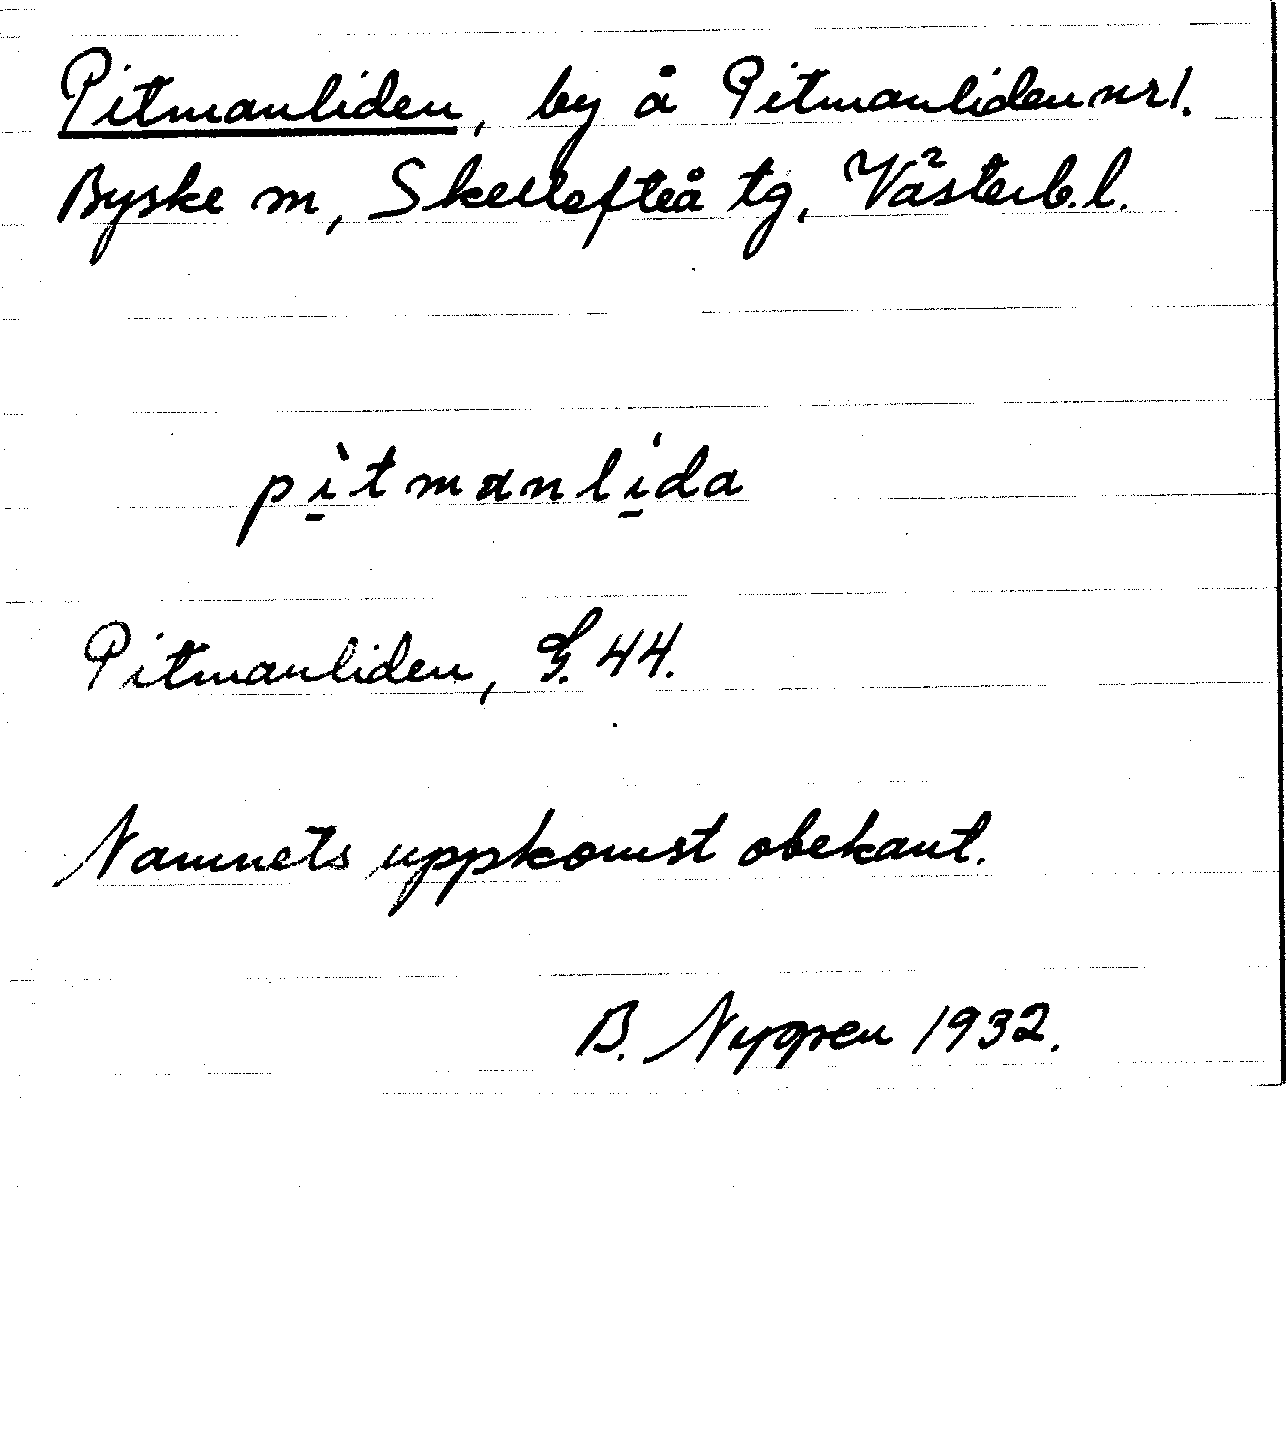 Pitmanliden, by å Pitmanliden nr 1.
Byske sn, Skellefteå tg, Västerb. l.
pìtmanlída
Pitmanliden, G. 44.
Namnets uppkomst obekant.
B. Nygren 1932.